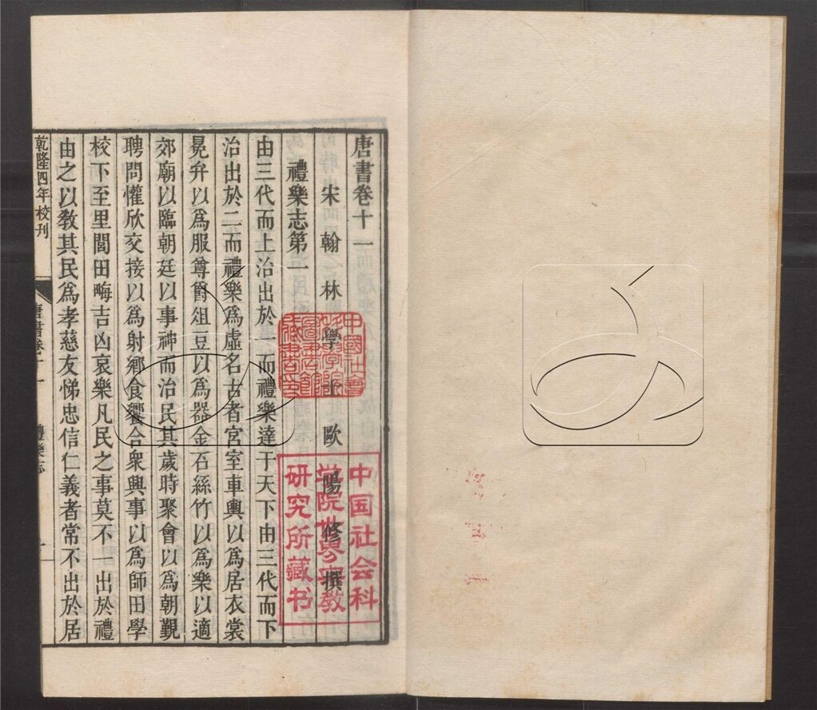 唐書卷十一
宋翰林學士歐陽修撰
禮樂志第一
由三代而上治出於一而禮樂達于天下由三代而下
治出於二而禮樂爲虛名古者宮室車輿以爲居衣裳
冕弁以爲服尊爵俎豆以爲器金石絲竹以爲樂以適
郊廟以臨朝廷以事神而治民其歲時聚會以爲朝覲
聘問懽欣交接以爲射鄉食饗合衆興事以爲師田學
校下至里閭田畮吉凶哀樂凡民之事莫不一出於禮
由之以敎其民爲孝慈友悌忠信仁義者常不出於居
乾隆四年校刊
唐書卷十一
禮樂志
一
中国社会科
学院世界宗教
研究所藏书